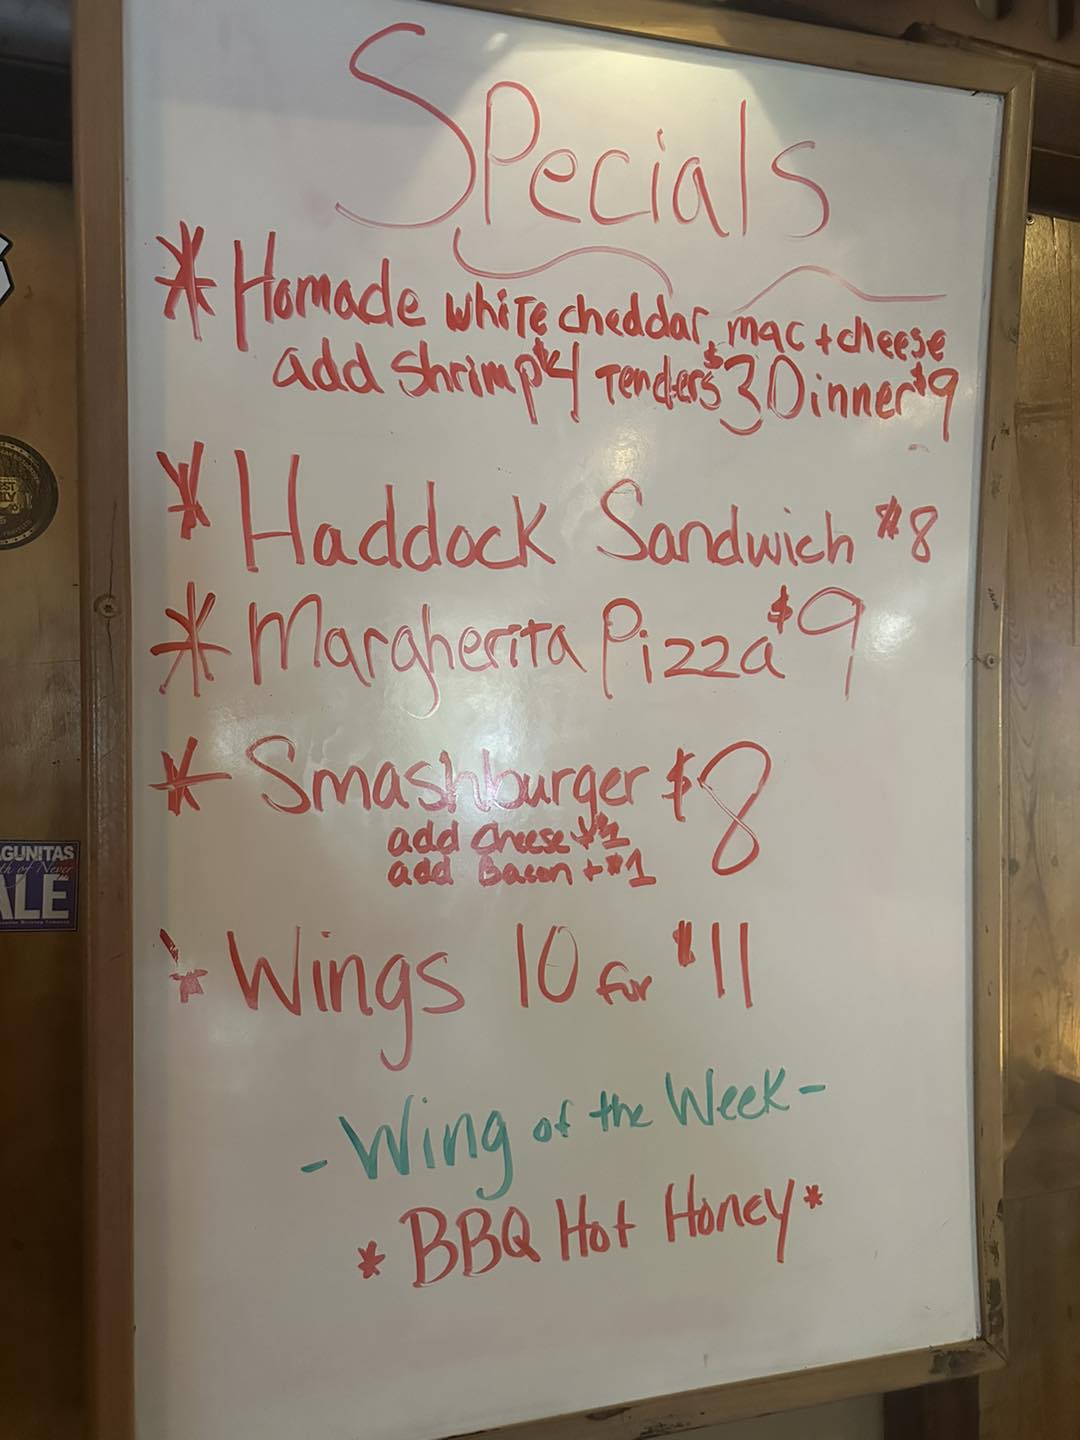 Specials
* Homade white cheddar mac + cheese
add shrimp $4 Tenders $3 Dinner $9
* Haddock Sandwich $8
* Margherita Pizza $9
* Smashburger $8
add cheese + $1
add Bacon + $1
* Wings 10 for $11
- Wing of the Week -
* BBQ Hot Honey *
GUNITAS
of Never
ALE